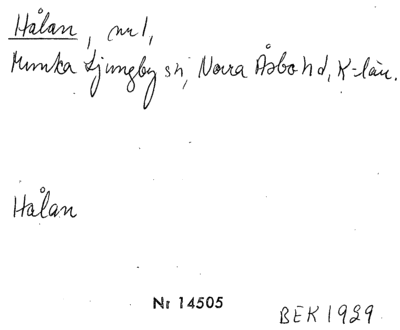 Hålan, nr 1,
Munka Ljungby sn, Norra Åsbo hd, K-län.
Hålan
Nr 14505
BEK 1929